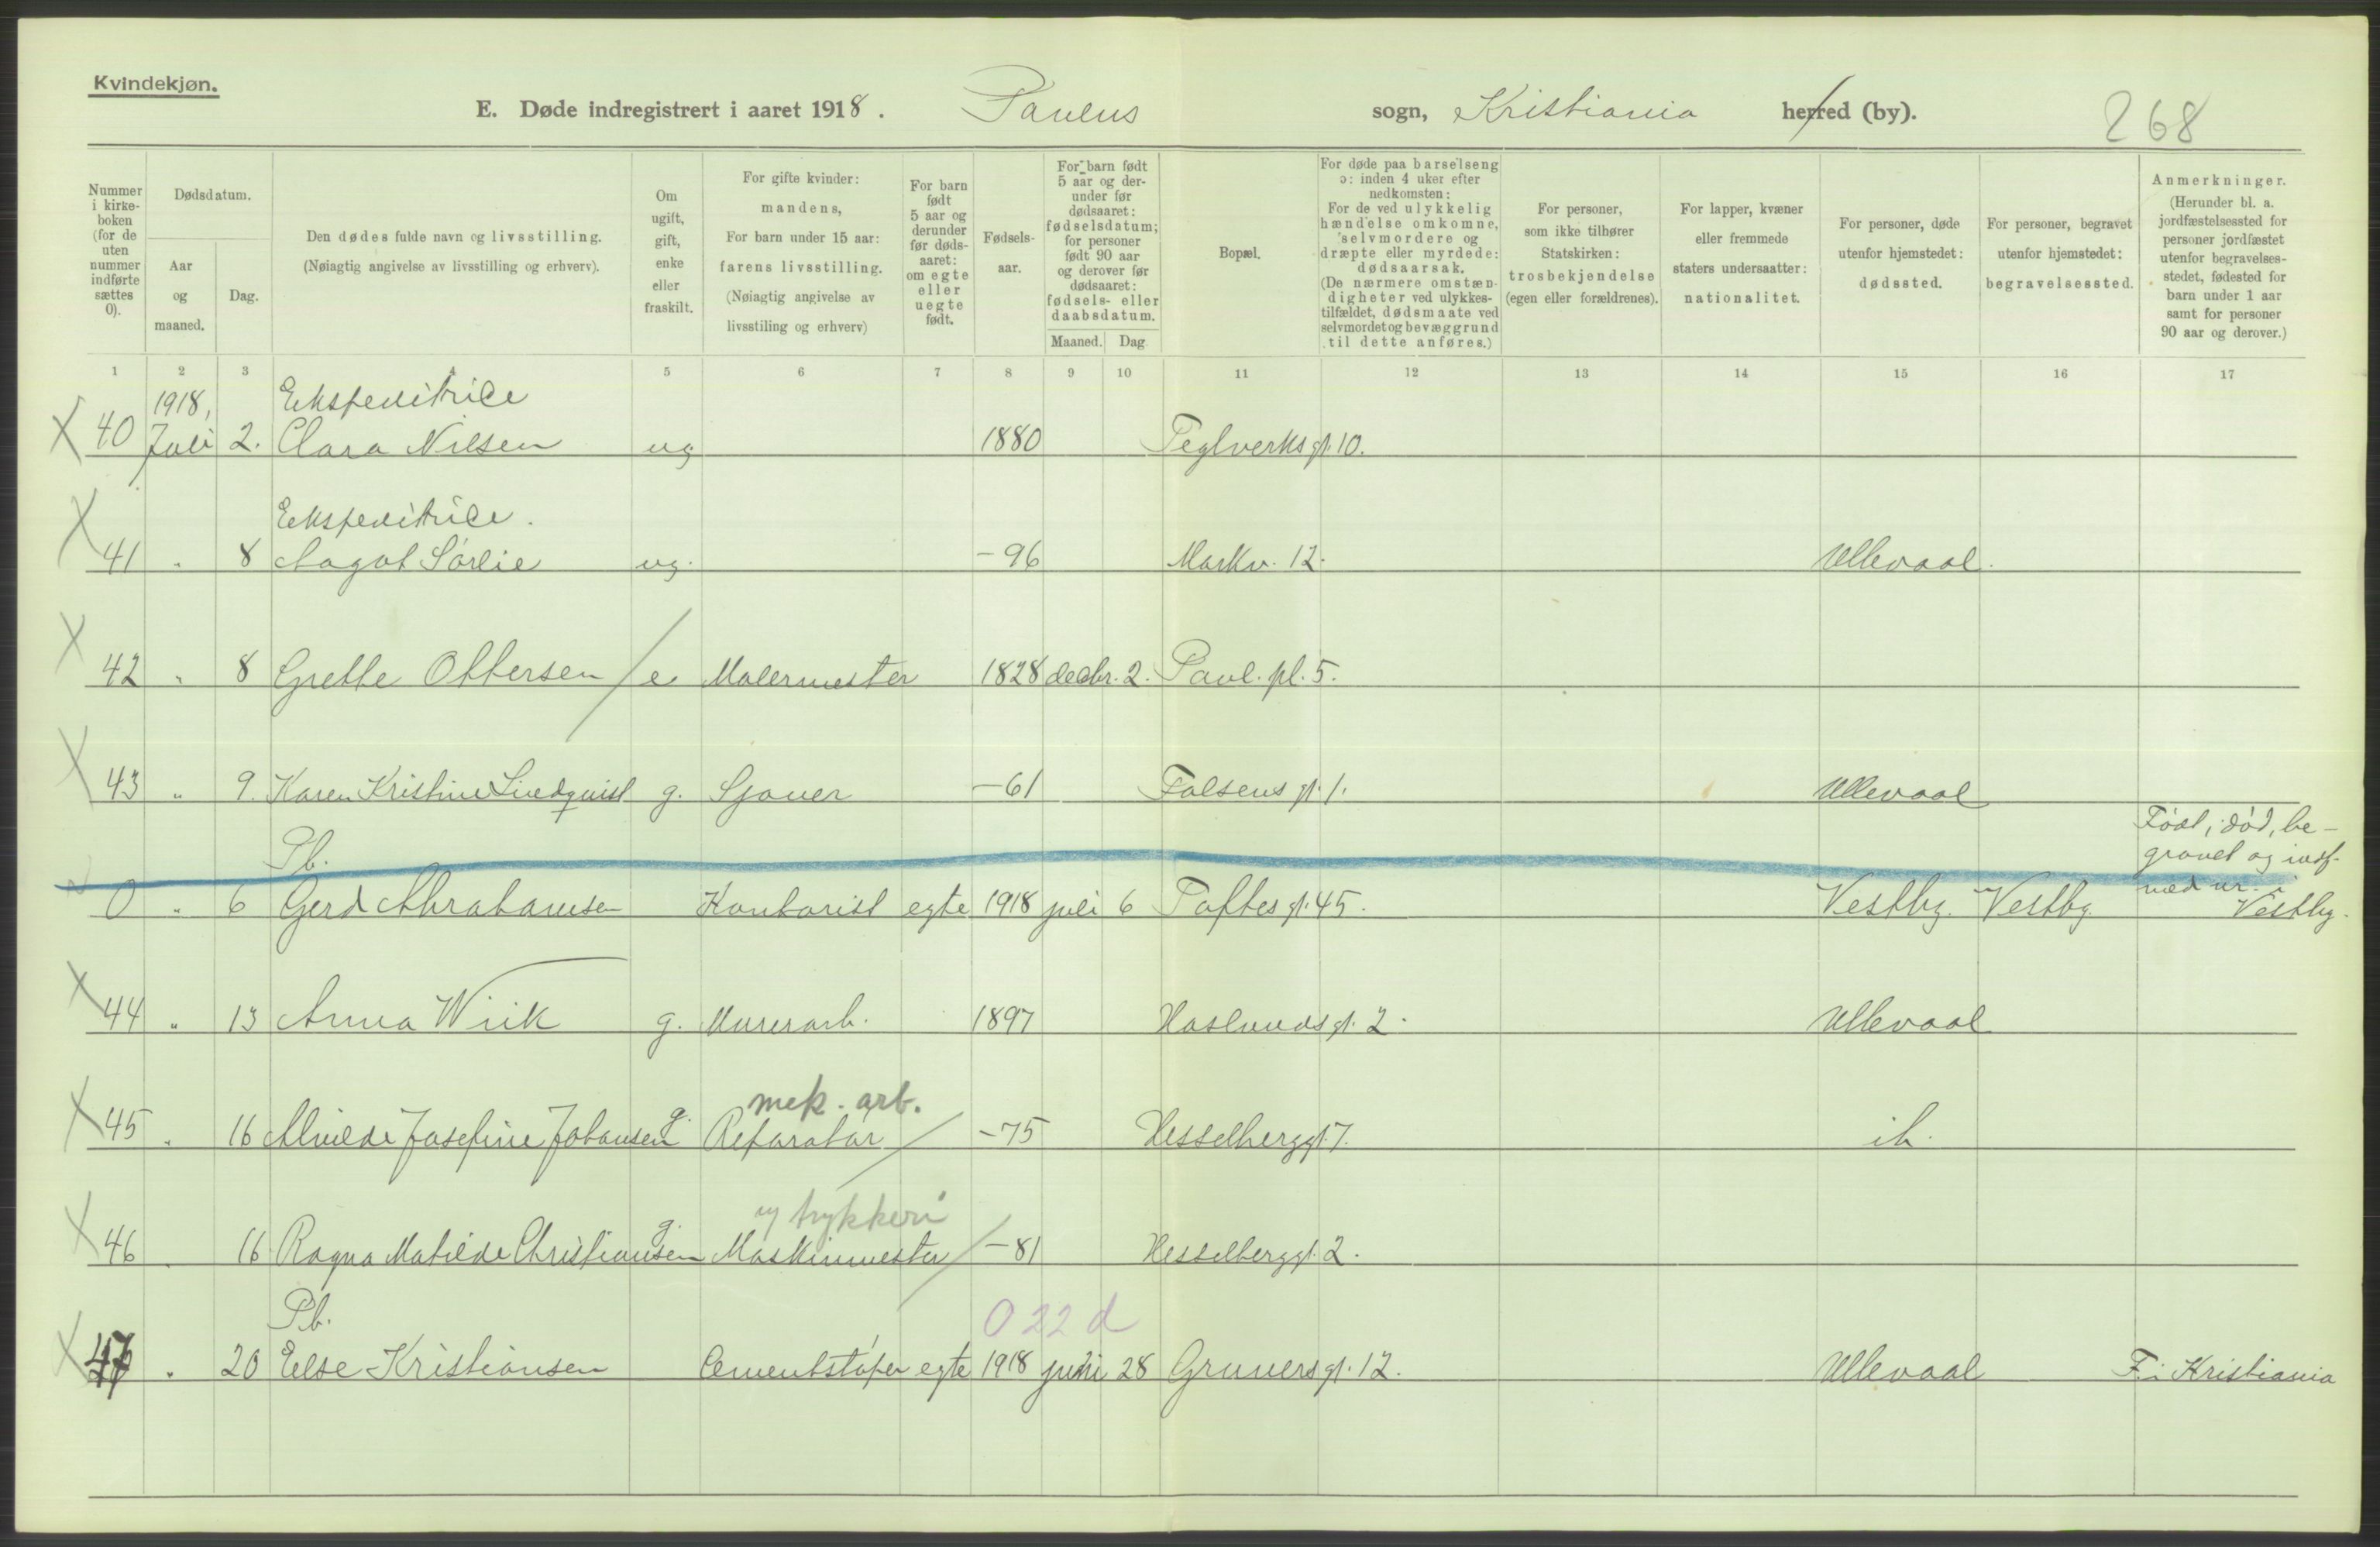 Kvindekjøn.
E. Døde indregistrert i aaret 1918. Paulus sogn, Kristiania herred (by). 268
Nummer i kirke-boken (for de uten nummer indførte sættes 0).
Dødsdatum.
Aar og maaned.
Dag.
Den dødes fulde navn og livsstilling.
(Nøiagtig angivelse av livsstilling og erhverv).
Om ugift, gift, enke eller fraskilt.
For gifte kvinder: mandens,
For barn under 15 aar: farens livsstilling.
(Nøiagtig angivelse av livsstiling og erhverv)
For barn født 5 aar og derunder før døds-aaret: om egte eller uegte født.
Fødsels-aar.
For barn født 5 aar og der-under før dødsaaret: fødselsdatum; for personer født 90 aar og derover før dødsaaret: fødsels- eller daabsdatum.
Maaned. Dag
Bopæl.
For døde paa barselseng ɔ: inden 4 uker efter nedkomsten:
For de ved ulykkelig hændelse omkomne, selvmordere og dræpte eller myrdede: dødsaarsak.
(De nærmere omstæn-digheter ved ulykkes-tilfældet, dødsmaate ved selvmordet og bevæggrund til dette anføres.)
For personer, som ikke tilhører Statskirken: trosbekjendelse (egen eller forældrenes).
For lapper, kvæner eller fremmede staters undersaatter: nationalitet.
For personer, døde utenfor hjemstedet: dødssted.
For personer, begravet utenfor hjemstedet: begravelsessted.
Anmerkninger.
(Herunder bl. a. jordfæstelsessted for personer jordfæstet utenfor begravelses-stedet, fødested for barn under 1 aar samt for personer 90 aar og derover.)
1 2 3 4 5 6 7 8 9 10 11 12 13 14 15 16 17
1918, Ekspeditrice
40 Juli 2. Clara Nilsen ug 1880 Teglverksgt. 10.
Ekspeditrice.
41 " 8 Aagot Sörlie ug. -96 Markv. 12. Ullevaal.
42 " 8 Grethe Ottersen / e Malermester 1828 decbr. 2. Paul. pl. 5.
43 " 9. Karen Kristine Lindquist g. Sjauer -61 Falsens gt. 1. Ullevaal
Pb. Född, död, be-
gravet og indf.
0 " 6 Gerd Abrahamsen Kontorist egte 1918 juli 6 Toftes gt. 45. Vestby. Vestby. med nr. i Vestby.
44 " 13 Anna Wiik g. Murerarb. 1897 Haslunds gt. 2. Ullevaal
mek. arb.
45 " 16 Alvilde Josefine Johansen g. Reparatör / -75 Hesselberggt. 7. ib.
trykkeri
46 " 16 Ragna Matilde Christiansen g. Maskinmester / -81 Hesselberggt. 2.
Pb. 0 22 d
47 " 20 Else Kristiansen Cementstöper egte 1918 juni 28 Gruners gt. 12. Ullevaal F. i Kristiania